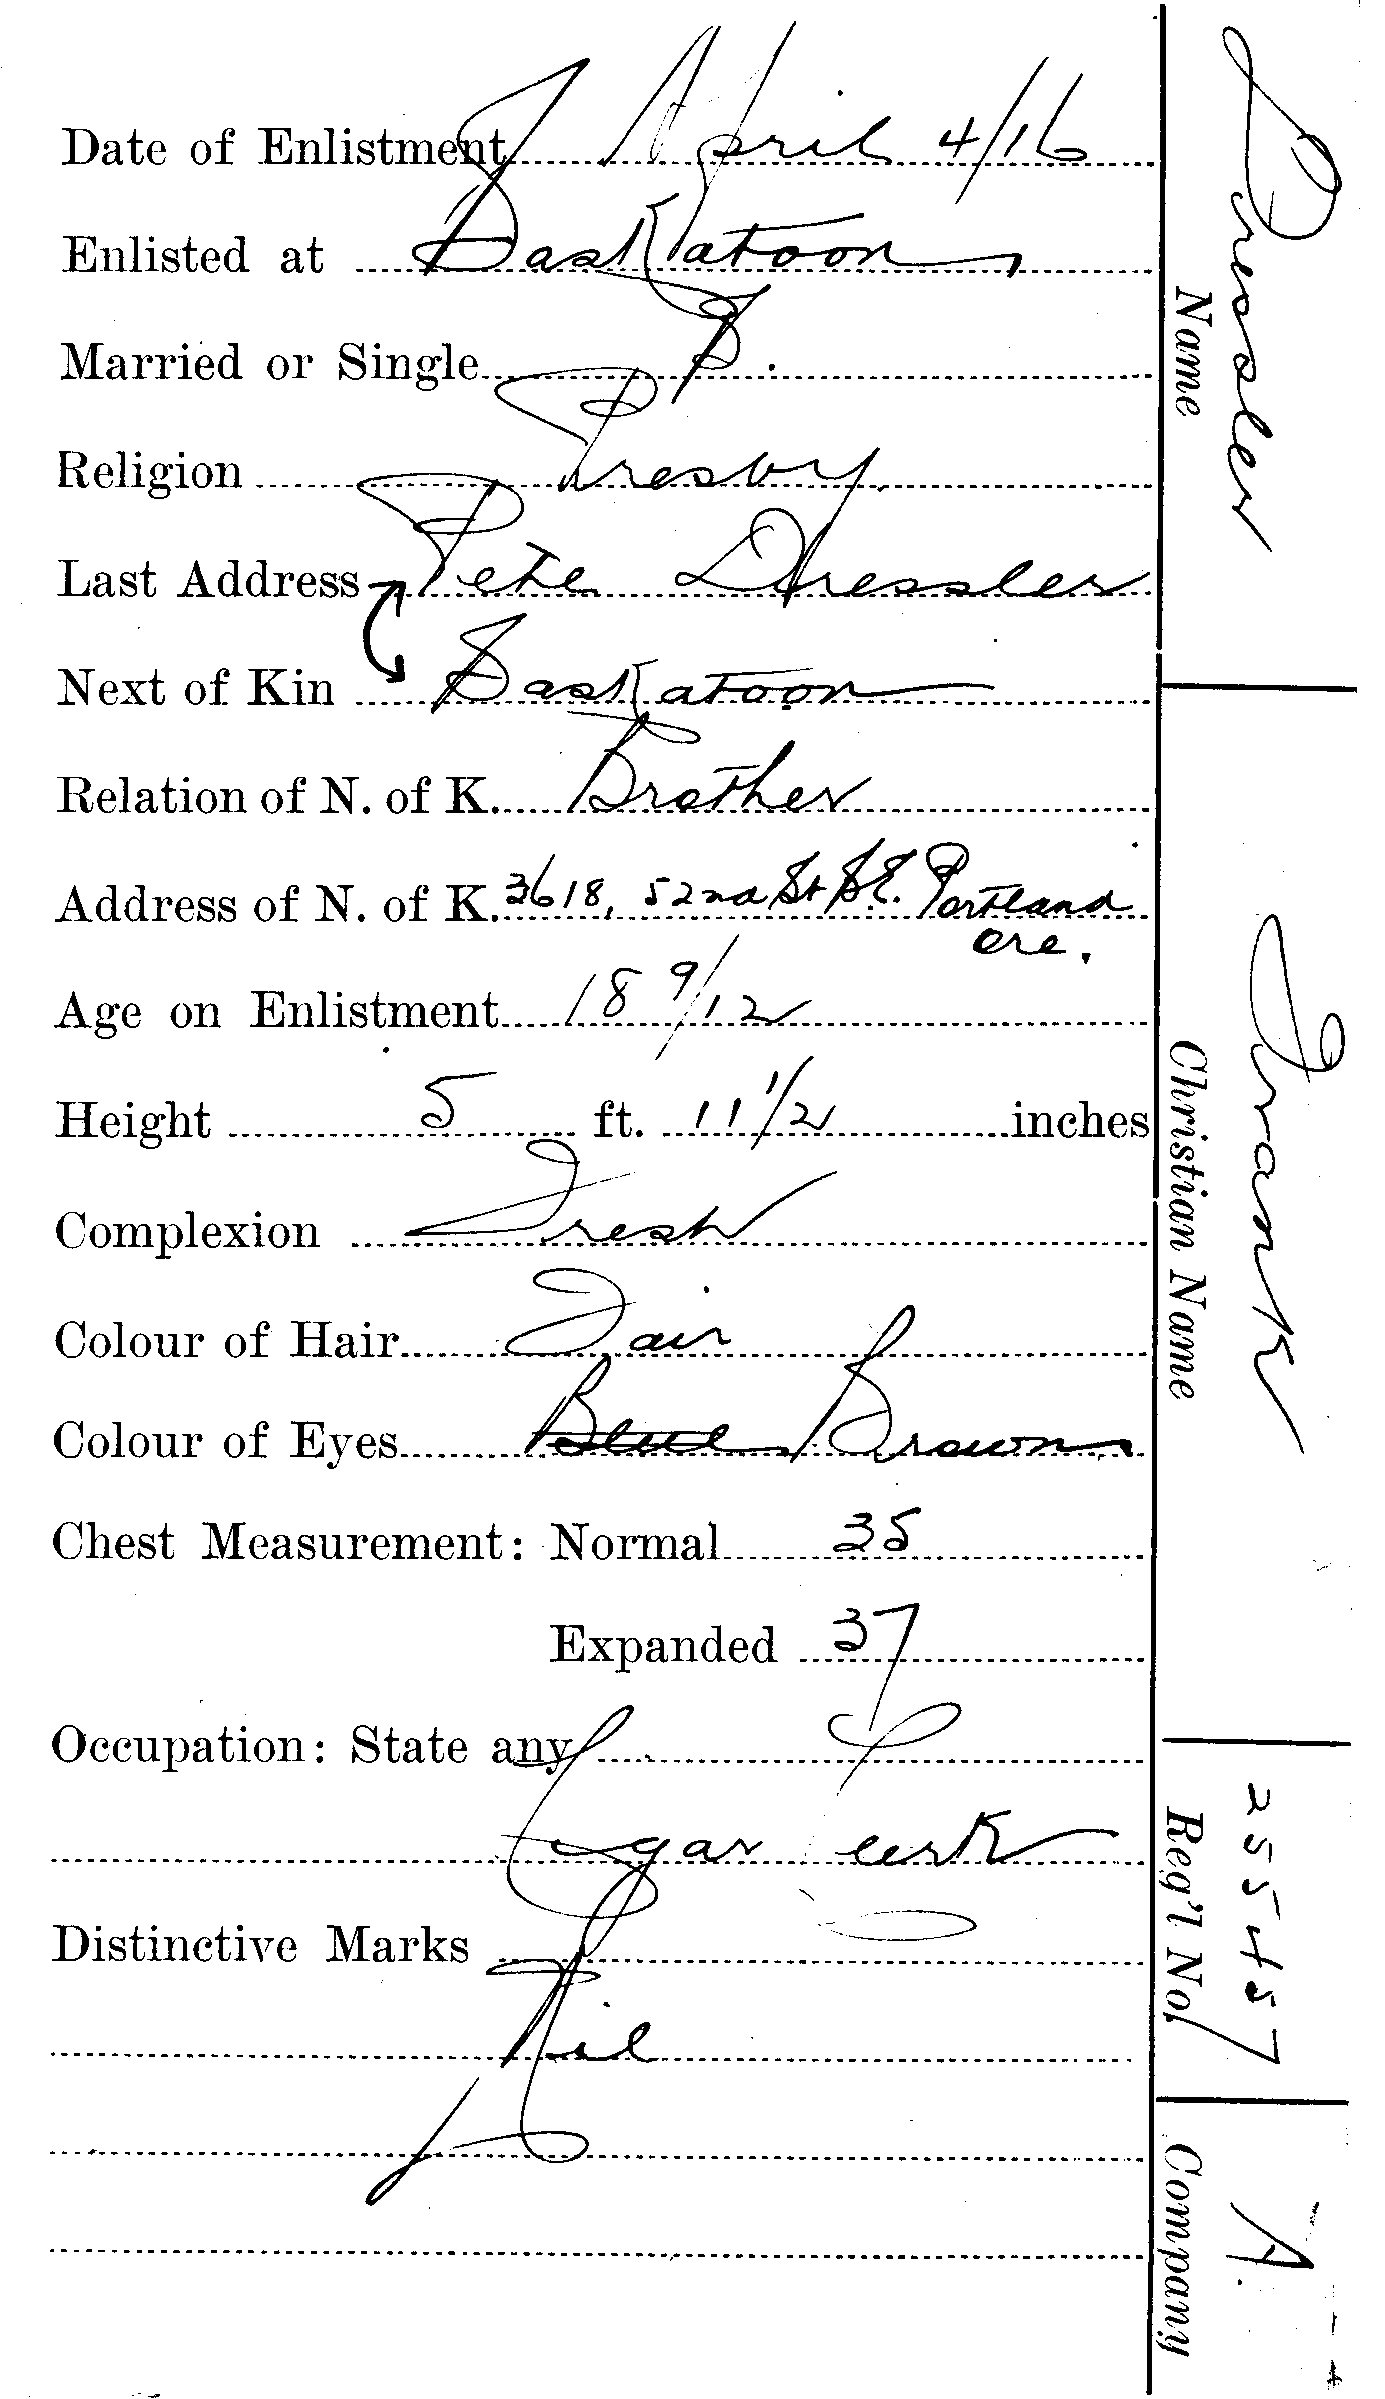 Date of Enlistment April 4/16
Enlisted at Saskatoon
Married or Single S.
Religion Presby.
Last Address Pete Dressler
Next of Kin Saskatoon
Relation of N. of K. Brother
Address of N. of K. 3618, 52nd St S.E. Portland
Ore.
Age on Enlistment 18 9/12
Height 5 ft. 11 1/2 inches
Complexion Fresh
Colour of Hair Fair
Colour of Eyes Blue Brown
Chest Measurement: Normal 35
Expanded 37
Occupation: State any
Cigar Clerk
Distinctive Marks
Nil
Dressler
Name
Frank
Christian Name
255457
Reg'l No.
A.
Company